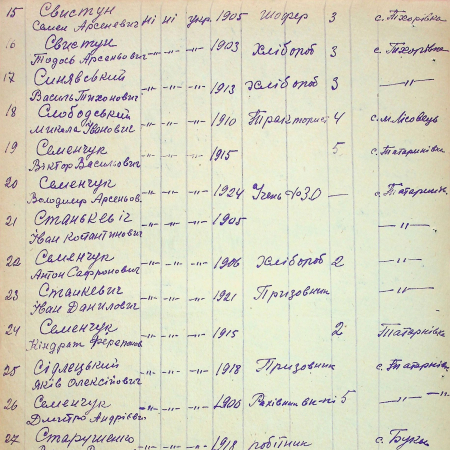 15 Свистун
Семен Арсеневич ні ні укр. 1905 шофер 3 с. Тхорівка
16 Свистун
Тодось Арсеньович -"- -"- -"- 1903 Хлібороб 3 с. Тхорівка
17 Синявський
Василь Тихонович -"- -"- -"- 1913 Хлібороб 3 -"-
18 Слободський
Микола Іванович -"- -"- -"- 1910 Тракторист 4 с. м. Лісовець
19 Семенчук
Віктор Васильович -"- -"- -"- 1915 5 с. Татаринівка
20 Семенчук
Володимир Арсеньов. -"- -"- -"- 1924 Учень — с.
21 Станькевіч
Іван Костантинович -"- -"- -"- 1905 -"-
22 Семенчук
Антон Сафронович -"- -"- -"- 1906 Хлібороб 2 -"-
23 Станкевич
Іван Данилович -"- -"- -"- 1921 Призовник -"-
24 Семенчук
Кіндрат -"- -"- -"- 1915 2 Татарнівка
25 Сідлецький
Яків Олексійович -"- -"- -"- 1918 Призовник с. Татарнівка
26 Семенчук
Дмитро Андрієвич -"- -"- -"- 1906 Рахівник 5 -"- -"-
27 Старушенко
-"- -"- -"- 1918 робітник с. Буки